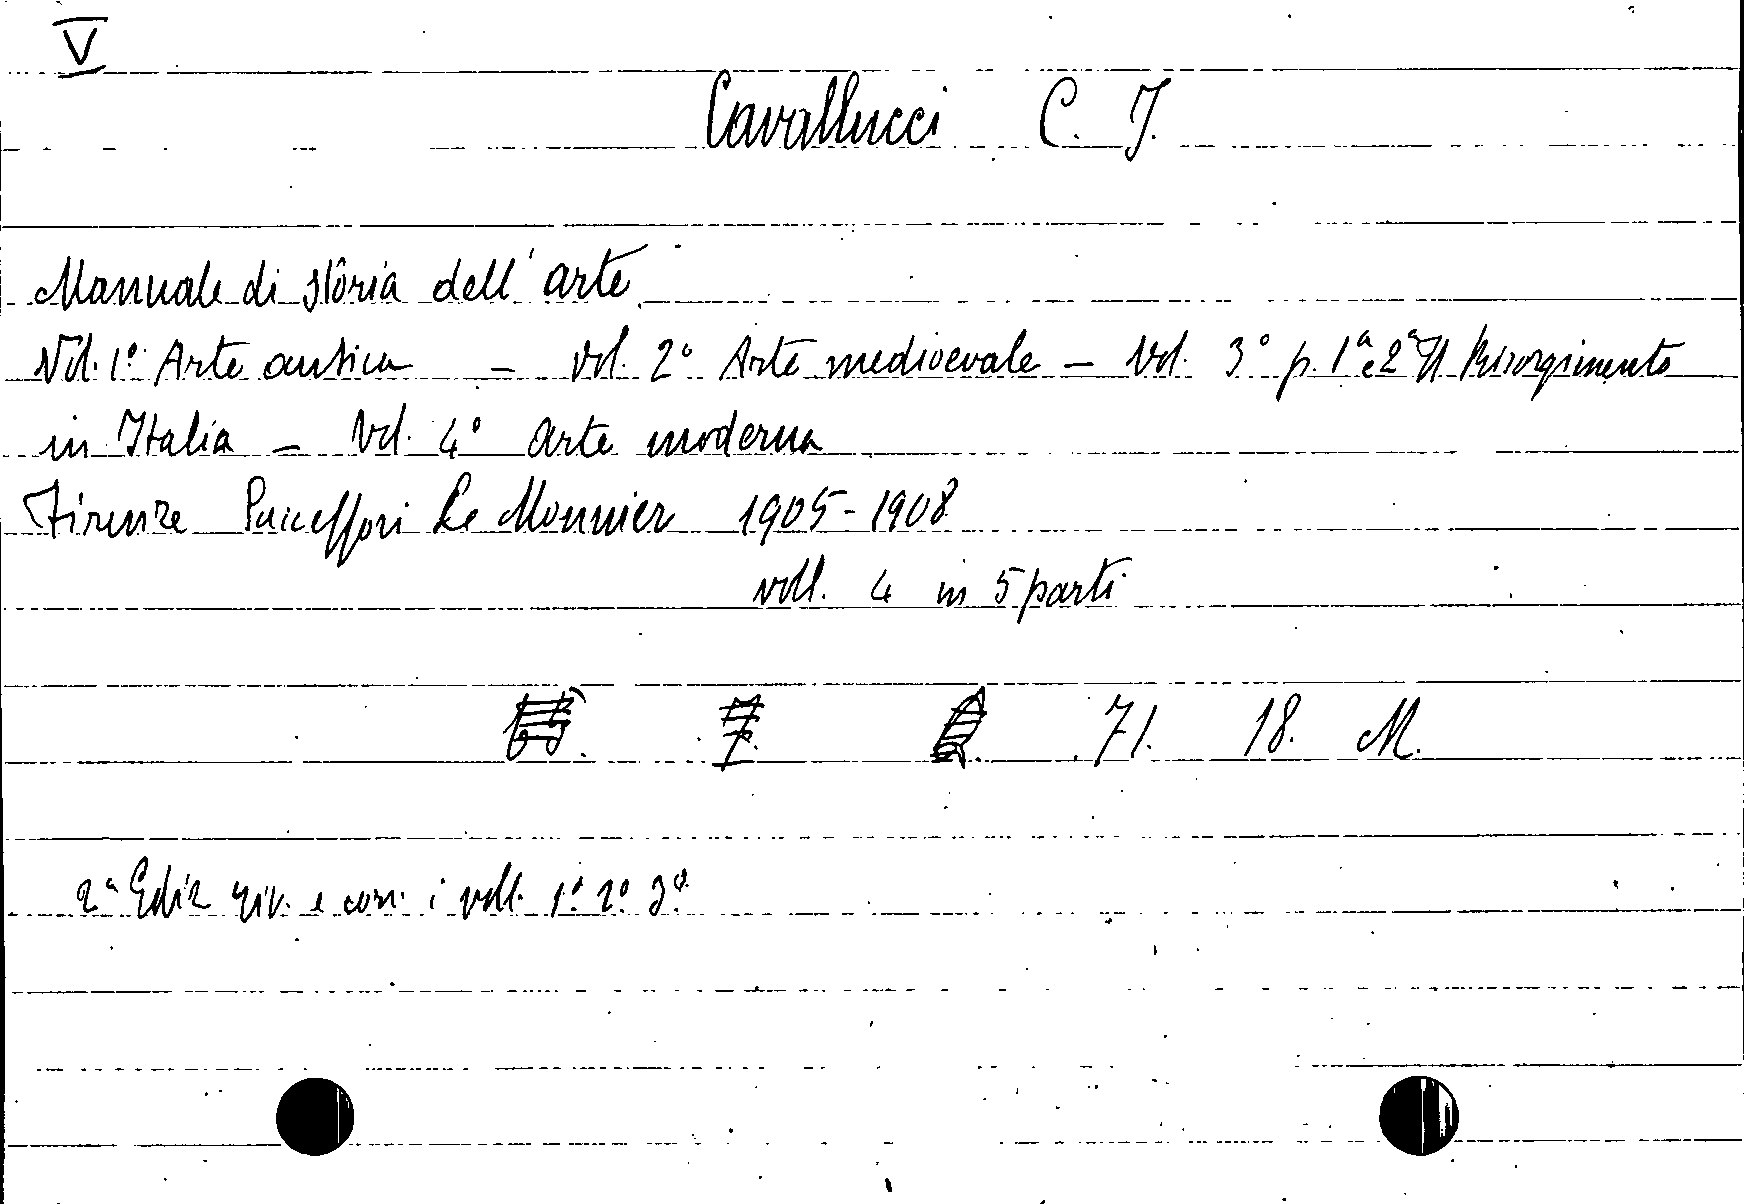 V
Cavallucci C. J.
Manuale di storia dell'arte
Vol. 1º Arte antica – vol. 2º Arte medioevale – Vol. 3º p. 1ª e 2ª Il Risorgimento
in Italia – Vol. 4º Arte moderna
Firenze Successori Le Monnier 1905-1908
voll. 4 in 5 parti
71. 18. M.
2ª Ediz riv. e corr. i voll. 1º. 2º. 3º.